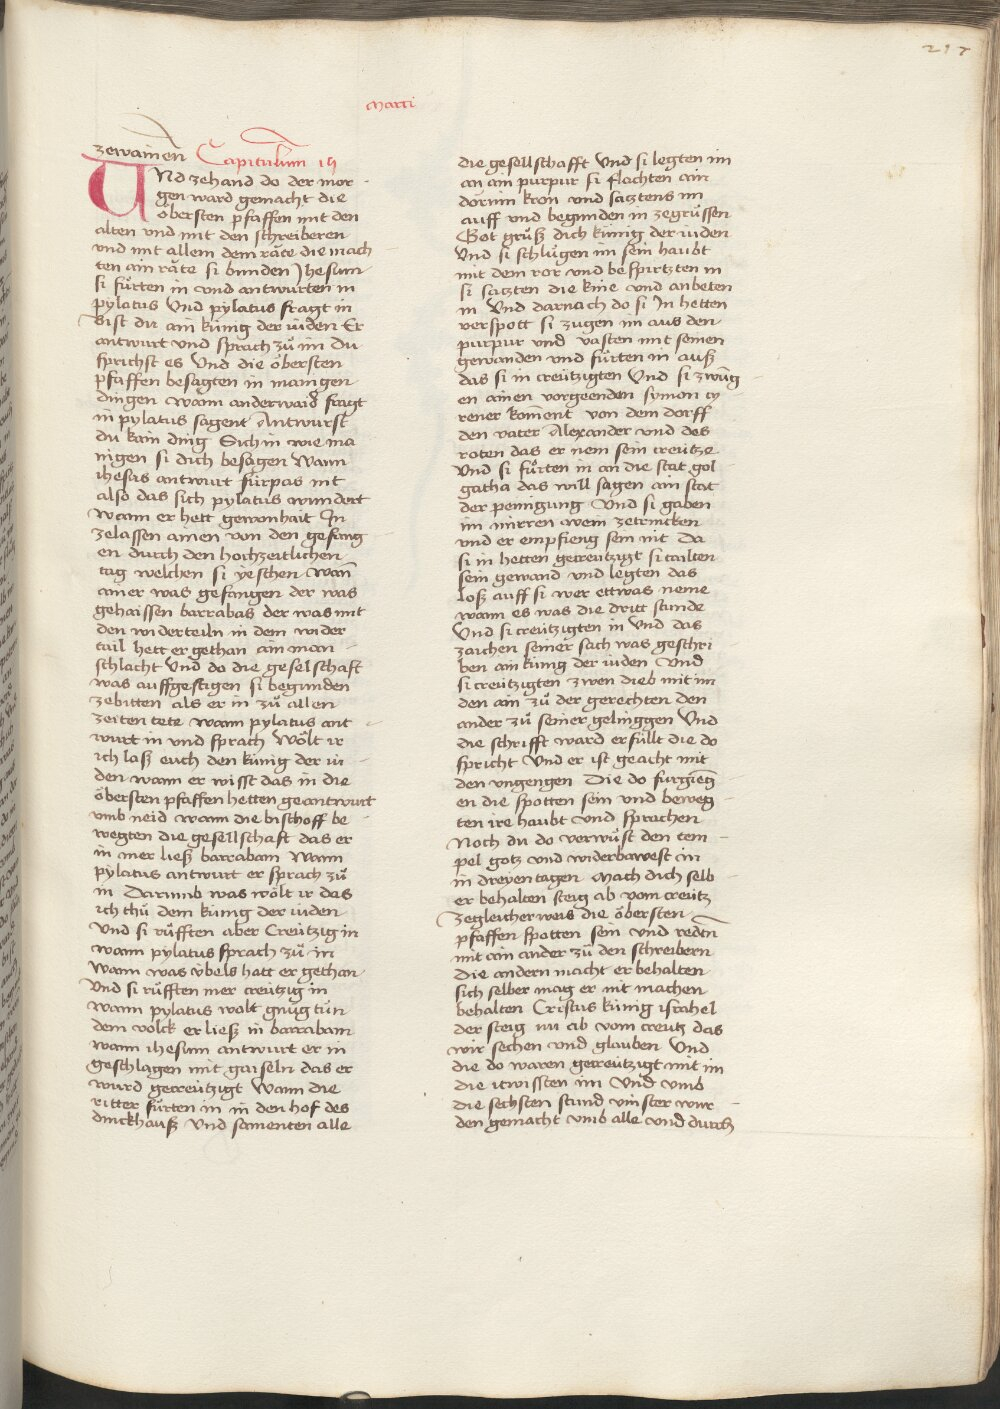 217
Marci
zewainen Capitulum 15
Vnd zehand do der mor-
gen ward gemacht die
öbersten pfaffen mit den
alten vnd mit den schreiberen
vnd mit allem dem räte die mach
ten ain räte si bunden Jhesum
si fürten in vnd antwurten in
pylatus Vnd pylatus fragt in
Bist du ain künig der iuden Er
antwurt vnd sprach zů im Du
sprichst es Vnd die öbersten
pfaffen besagten in mangen
dingen wann anderwaid fragt
in pylatus sagent Antwurst
du kain ding Sich in wie ma
nigen si dich besagen Wann
ihesus antwurt fürpas nit
also das sich pylatus wundert
Wann er hett gewonhait In
zelassen ainen von den gefang
en durch den hochzeitlichen
tag welchen si yeschen Wan̄
ainer was gefangen der was
gehaissen barrabas der was mit
den widerteiln in dem wider
tail hett er gethan ain man-
schlacht Vnd do die geselschaft
was auffgestigen si begunden
zebitten als er in zů allen
zeiten tete wann pylatus ant-
wurt in vnd sprach Wölt ir
ich laß euch den künig der iu-
den wann er wisst das in die
öbersten pfaffen hetten geantwurt
vmb neid wann die bischoff be
wegten die gesellschaft das er
in mer ließ barrabam Wann
pylatus antwurt er sprach zů
in Darumb was wölt ir das
ich thů dem künig der iuden
Vnd si růfften aber Creützig in
wann pylatus sprach zů in
Wann was vbels hatt er gethan
Vnd si růfften mer creützig in
wann pylatus wolt gnůg tůn
dem volck er ließ in barrabam
wann ihesum antwurt er in
geschlagen mit gaiseln das er
wurd gecreützigt Wann die
ritter fürten in in den hof des
dinckhauß Vnd samenten alle
die gesellschafft Vnd si legten im
an ain purpur si flachten ain
dornin kron vnd saztens im
auff vnd begunden in zegrüssen
Got grüß dich künig der iuden
Vnd si schlůgen im sein haubt
mit dem ror vnd bespirtzten in
si sazten die knie vnd anbeten
in Vnd darnach do si In hetten
verspott si zugen im aus den
purpur vnd vasten mit seinen
gewanden vnd fürten in auß
das si in creützigten Vnd si zwūg
en ainen vorgeenden symon cy
rener koment von dem dorff
den vater Alexander vnd des
roten das er nem sein creütze
Vnd si fürten in an die stat gol
gatha das will sagen ain stat
der peinigung Vnd si gaben
im mirren wein zetrincken
vnd er empfieng sein nit Da
si in hetten gecreützigt si tailten
sein gewand vnd legten das
loß auff si wer ettwas neme
wann es was die dritt stunde
Vnd si creützigten in Vnd das
zaichen seiner sach was geschri
ben ain künig der iuden Vnd
si creützigten zwen dieb mit im
den ain zů der gerechten den
ander zů seiner gelinggen Vnd
die schrifft ward erfüllt die do
spricht Vnd er ist geacht mit
den vngengen Die do fürgieng
en die spotten sein vnd beweg
ten ire haubt vnd sprachen
Noch du do verwüst den tem
pel gotz vnd widerbawest in
in dreyen tagen Mach dich selb
er behalten steig ab vom creütz
Zegleicher weis die öbersten
pfaffen spotten sein vnd redtn̄
mit ain ander zů den schreibern
Die andern macht er behalten
sich selber mag er nit machen
behalten Cristus künig israhel
der steig nu ab vom creutz das
wir sechen vnd glauben Vnd
die do waren gecreützigt mit im
die itwissten im Vnd vmb
die sechsten stund vinster wur
den gemacht vmb alle vnd durch